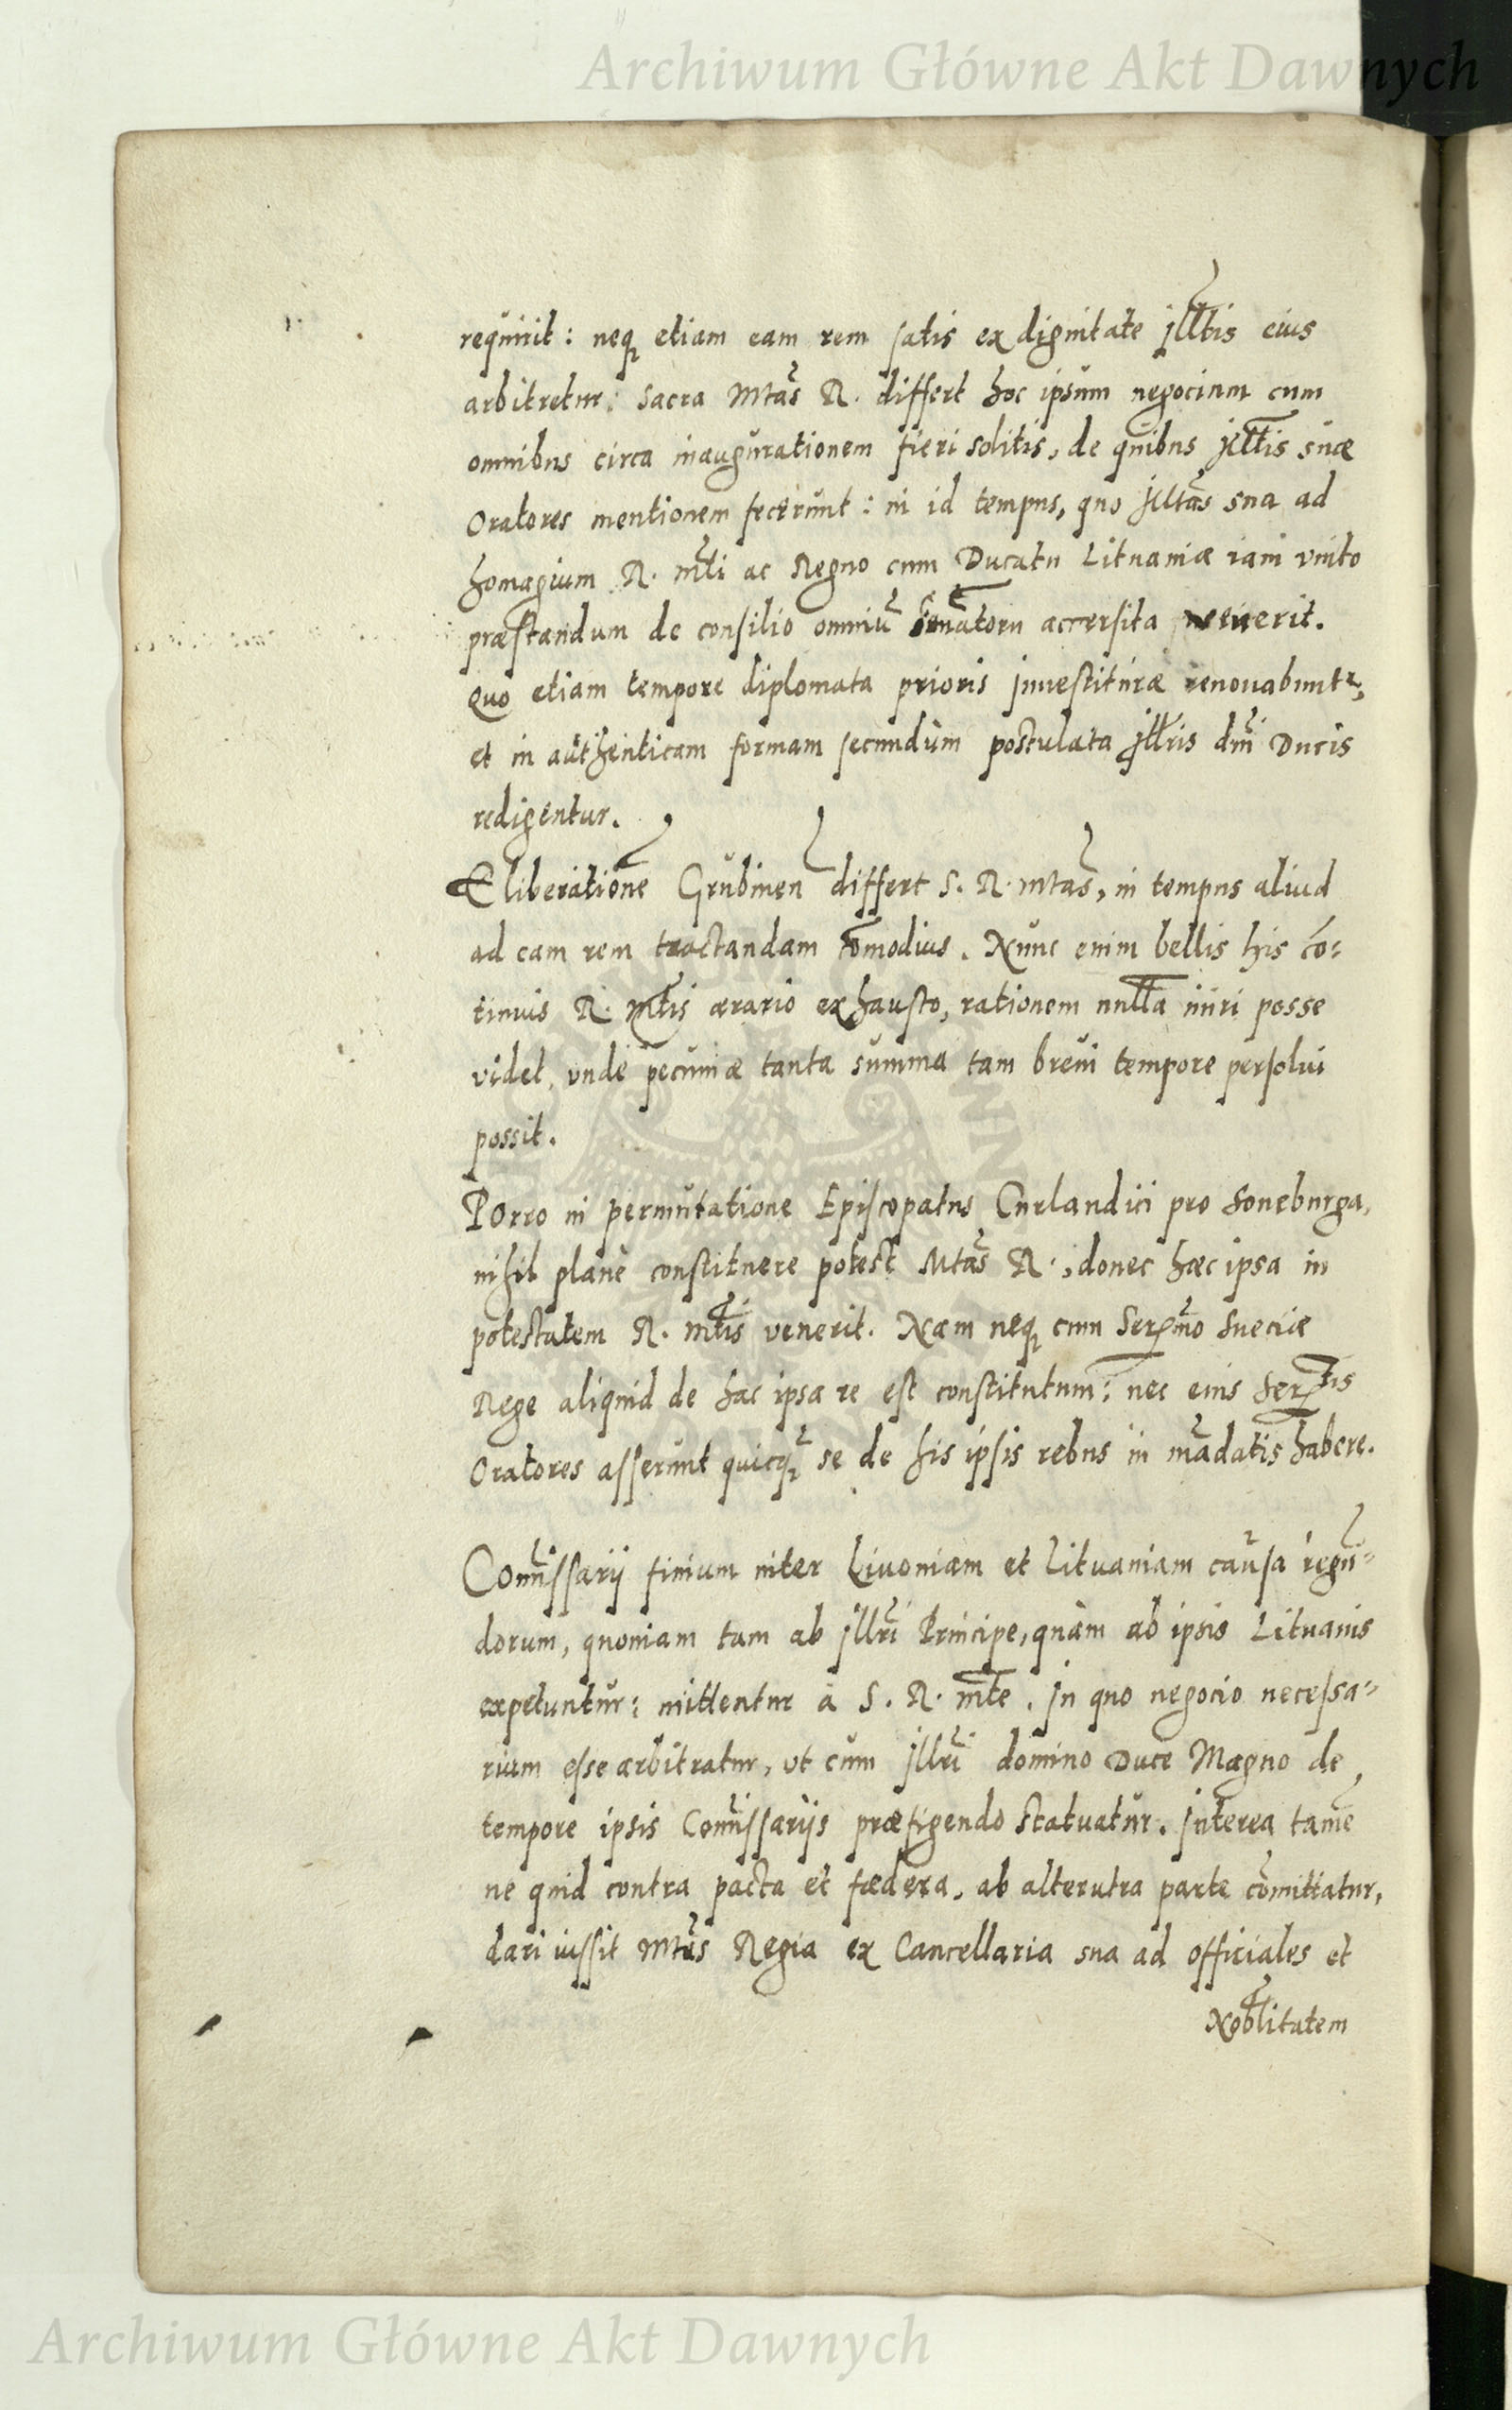 Archiwum Główne Akt Dawnych
requirit: neq₃ etiam eam rem satis ex dignitate Illtis eius
arbitretur: Sacra Mtas R. differt hoc ipsum negocium cum
omnibus circa inaugurationem fieri solitis, de quibus Illtis suæ
Oratores mentionem fecerunt: in id tempus, quo Illtas sua ad
homagium R. Mti ac Regno cum Ducatu Lituaniæ iam vnito
præstandum de consilio omniū Senatorū accersita venerit.
Quo etiam tempore diplomata prioris Inuestituræ renouabuntr,
et in authenticam formam secundum postulata Illris dni Ducis
redigentur.
Eliberationē Grubinen differt S. R. Mtas, in tempus aliud
ad eam rem tractandam cōmodius. Nunc enim bellis his cō-
tinuis R. Mtis ærario exhausto, rationem nullā iniri posse
videt, vnde pecuniæ tanta summa tam breui tempore persolui
possit.
Porro in permutatione Episcopatus Curlandici pro Soneburga,
nihil planè constituere potest Mtas R., donec hæc ipsa in
potestatem R. Mtis venerit. Nam neq₃ cum Sermo Sueciæ
Rege aliquid de hac ipsa re est constitutum: nec eius Sertis
Oratores asserunt quicq̄ se de his ipsis rebus in mādatis habere.
Com̄issarij finium inter Liuoniam et Lituaniam causa regū-
dorum, quoniam tam ab Illri Principe, quàm ab ipsis Lituanis
expetuntur: mittentur à S. R. Mte. In quo negocio necessa-
rium esse arbitratur, vt cum Illri domino Duce Magno de
tempore ipsis Com̄issarijs præfigendo statuatur. Interea tamē
ne quid contra pacta et fœdera, ab alterutra parte cōmittatur,
dari iussit Mtas Regia ex Cancellaria sua ad officiales et
Nobilitatem
Archiwum Główne Akt Dawnych